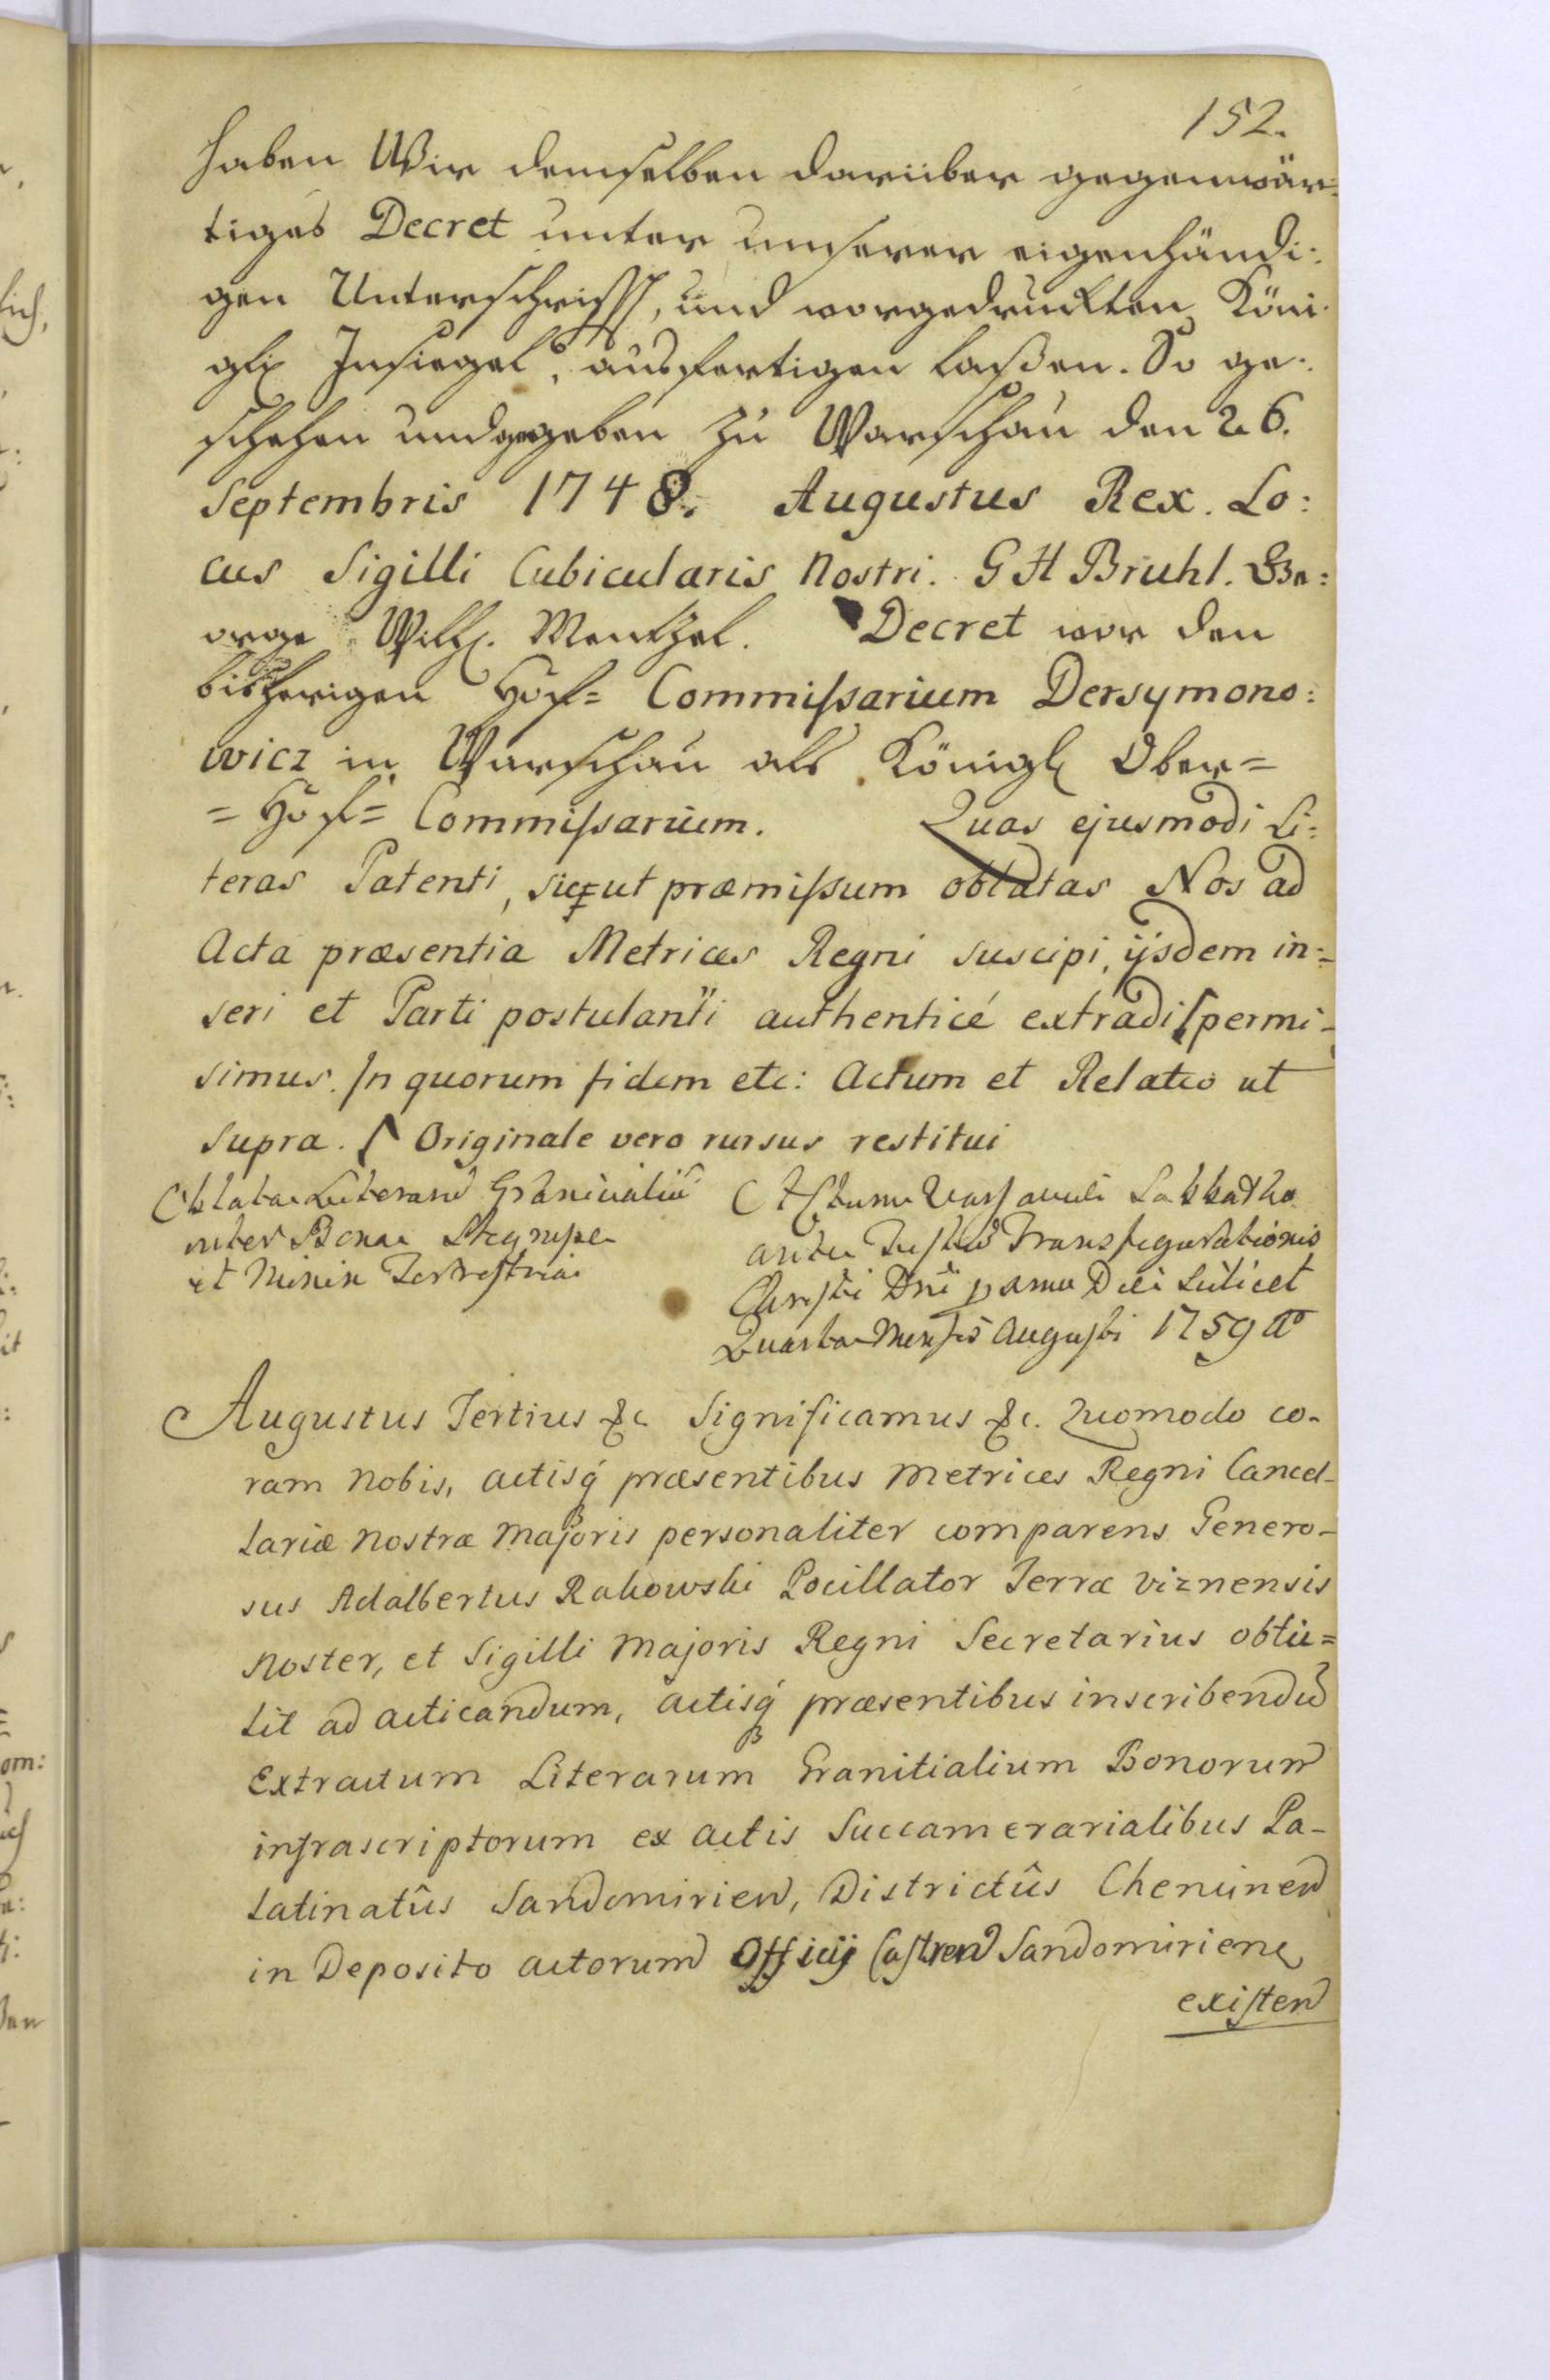 152.
haben Wir demselben darüber gegenwär=
tiges Decret unter unserer eigenhändi:
gen Unterschrifft, und vorgedruckten Köni
glx Insiegel, ausfertigen laßen. So ge:
schehen und gegeben zu Warschau den 26.
Septembris 1748. Augustus Rex. Lo:
cus Sigilli Cubicularis Nostri. G H Bruhl. Ge:
orge Wilh. Mentzel. Decret vor den
bisherigen Hof= Commissarium Dersymono:
wicz in Warschau als Königl Ober=
= Hof= Commissarium. Quas ejusmodi Li:
teras Patenti, sicut præmissum oblatas Nos ad
Acta præsentia Metrices Regni suscipi, ijsdem in=
seri et Parti postulanti authenticé extradi permi-
simus. In quorum fidem etc: Actum et Relatio ut
supra. Originale vero rursus restitui
Oblata Literarū Granicialiū
inter Bona Stegnipe
et Minin Terrestria
Actum Varsaviæ Sabbatho
ante Festū Transfigurationis
Christi Dni prima Die Scilicet
Quarta Mensis Augusti 1759 Ao
Augustus Tertius &c Significamus &c. Quomodo co-
ram Nobis, actisq́ præsentibus Metrices Regni Cancel-
lariæ Nostræ Majoris personaliter comparens Genero-
sus Adalbertus Rakowski Pocillator Terræ Viznensis
Noster, et Sigilli Majoris Regni Secretarius obtu=
lit ad acticandum, actisq́ præsentibus inscribendū
Extractum Literarum Granitialium Bonorum
infrascriptorum ex actis Succamerarialibus Pa-
latinatûs Sandomirien, Districtûs Chencinen
in Deposito actorum Officij Castren Sandomirien
existen